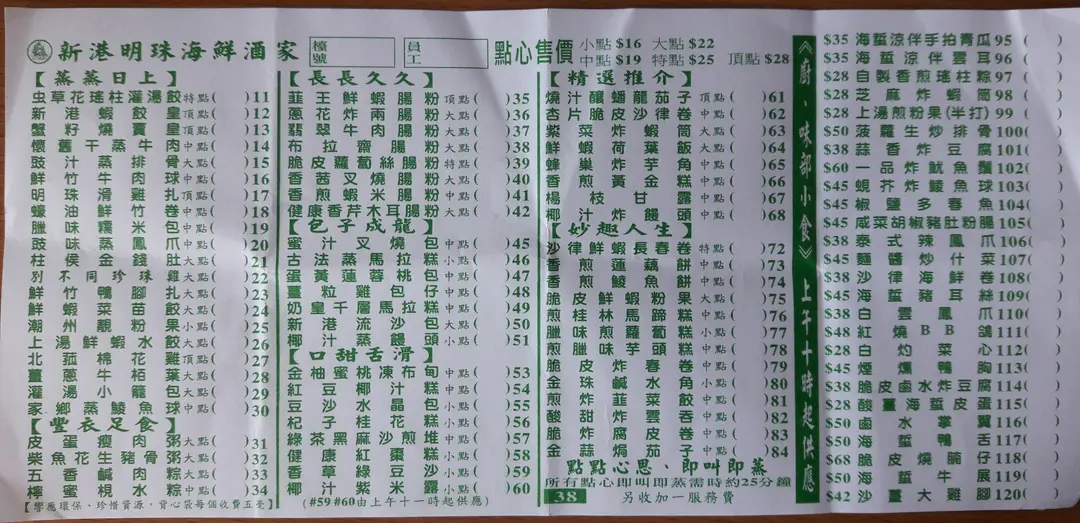 新港明珠海鮮酒家
檯號
員工
點心售價
小點$16 大點$22
中點$19 特點$25 頂點$28
【蒸蒸日上】
虫草花瑤柱灌湯餃 特點( )11
新港蝦餃皇 頂點( )12
蟹籽燒賣皇 頂點( )13
懷舊干蒸牛肉 中點( )14
豉汁蒸排骨 大點( )15
鮮竹牛肉球 中點( )16
明珠滑雞扎 頂點( )17
蠔油鮮竹卷 中點( )18
臘味糯米包 中點( )19
豉味蒸鳳爪 中點( )20
柱侯金錢肚 大點( )21
別不同珍珠雞 大點( )22
鮮竹鴨腳扎 大點( )23
鮮蝦菜苗餃 大點( )24
潮州靚粉果 小點( )25
上湯鮮蝦水餃 大點( )26
北菰棉花雞 頂點( )27
薑蔥牛栢葉 大點( )28
灌湯小籠包 大點( )29
家鄉蒸鯪魚球 中點( )30
【豐衣足食】
皮蛋瘦肉粥 大點( )31
柴魚花生豬骨粥 大點( )32
五香鹹肉粽 大點( )33
櫸蜜梘水粽 中點( )34
【響應環保、珍惜資源，背心袋每個收費五毫】
【長長久久】
韮王鮮蝦腸粉 頂點( )35
蔥花炸兩腸粉 大點( )36
翡翠牛肉腸粉 大點( )37
布拉齋腸粉 大點( )38
脆皮蘿蔔絲腸粉 特點( )39
香茜叉燒腸粉 大點( )40
香煎蝦米腸粉 中點( )41
健康香芹木耳腸粉 大點( )42
【包子成龍】
蜜汁叉燒包 中點( )45
古法蒸馬拉糕 小點( )46
蛋黃蓮蓉桃包 中點( )47
薑粒雞包仔 中點( )48
奶皇千層馬拉糕 中點( )49
新港流沙包 大點( )50
椰汁蒸饅頭 小點( )51
【口甜舌滑】
金柚蜜桃凍布甸 中點( )53
紅豆椰汁糕 中點( )54
豆沙水晶包 小點( )55
杞子桂花糕 小點( )56
綠茶黑麻沙煎堆 中點( )57
健康紅棗糕 小點( )58
香草綠豆沙 小點( )59
椰汁紫米露 小點( )60
(#59 #60由上午十一時起供應)
【精選推介】
燒汁釀蟠龍茄子 頂點( )61
杏片脆皮沙律卷 中點( )62
紫菜炸蝦筒 大點( )63
鮮蝦荷葉飯 大點( )64
蜂巢炸芋角 中點( )65
香煎黃金糕 中點( )66
楊枝甘露 中點( )67
椰汁炸饅頭 中點( )68
【妙趣人生】
沙律鮮蝦長春卷 特點( )72
香煎蓮藕餅 中點( )73
香煎鯪魚餅 中點( )74
脆皮鮮蝦粉果 大點( )75
煎桂林馬蹄糕 中點( )76
臘味煎蘿蔔糕 小點( )77
煎臘味芋頭糕 中點( )78
脆皮炸春卷 中點( )79
金珠鹹水角 小點( )80
煎炸韮菜餃 中點( )81
酸甜炸雲吞 中點( )82
脆炸腐皮卷 中點( )83
金蒜焗茄子 中點( )84
點點心思、即叫即蒸
所有點心即叫即蒸需時約25分鐘
38 另收加一服務費
《廚·味部小食》上午十時起供應
$35 海蜇涼伴手拍青瓜 95 ( )
$35 海蜇涼伴雲耳 96 ( )
$28 自製香煎瑤柱粽 97 ( )
$28 芝麻炸蝦筒 98 ( )
$28 上湯煎粉果(半打) 99 ( )
$50 菠蘿生炒排骨 100( )
$38 蒜香炸豆腐 101( )
$60 一品炸魷魚鬚 102( )
$45 蜆芥炸鯪魚球 103( )
$45 椒鹽多春魚 104( )
$45 咸菜胡椒豬肚粉腸 105( )
$38 泰式辣鳳爪 106( )
$45 麵醬炒什菜 107( )
$38 沙律海鮮卷 108( )
$45 海蜇豬耳絲 109( )
$38 白雲鳳爪 110( )
$48 紅燒BB鴿 111( )
$28 白灼菜心 112( )
$45 煙燻鴨胸 113( )
$38 脆皮鹵水炸豆腐 114( )
$28 酸薑海蜇皮蛋 115( )
$50 鹵水掌翼 116( )
$50 海蜇鴨舌 117( )
$68 脆皮燒腩仔 118( )
$50 海蜇牛𦟌 119( )
$42 沙薑大雞腳 120( )